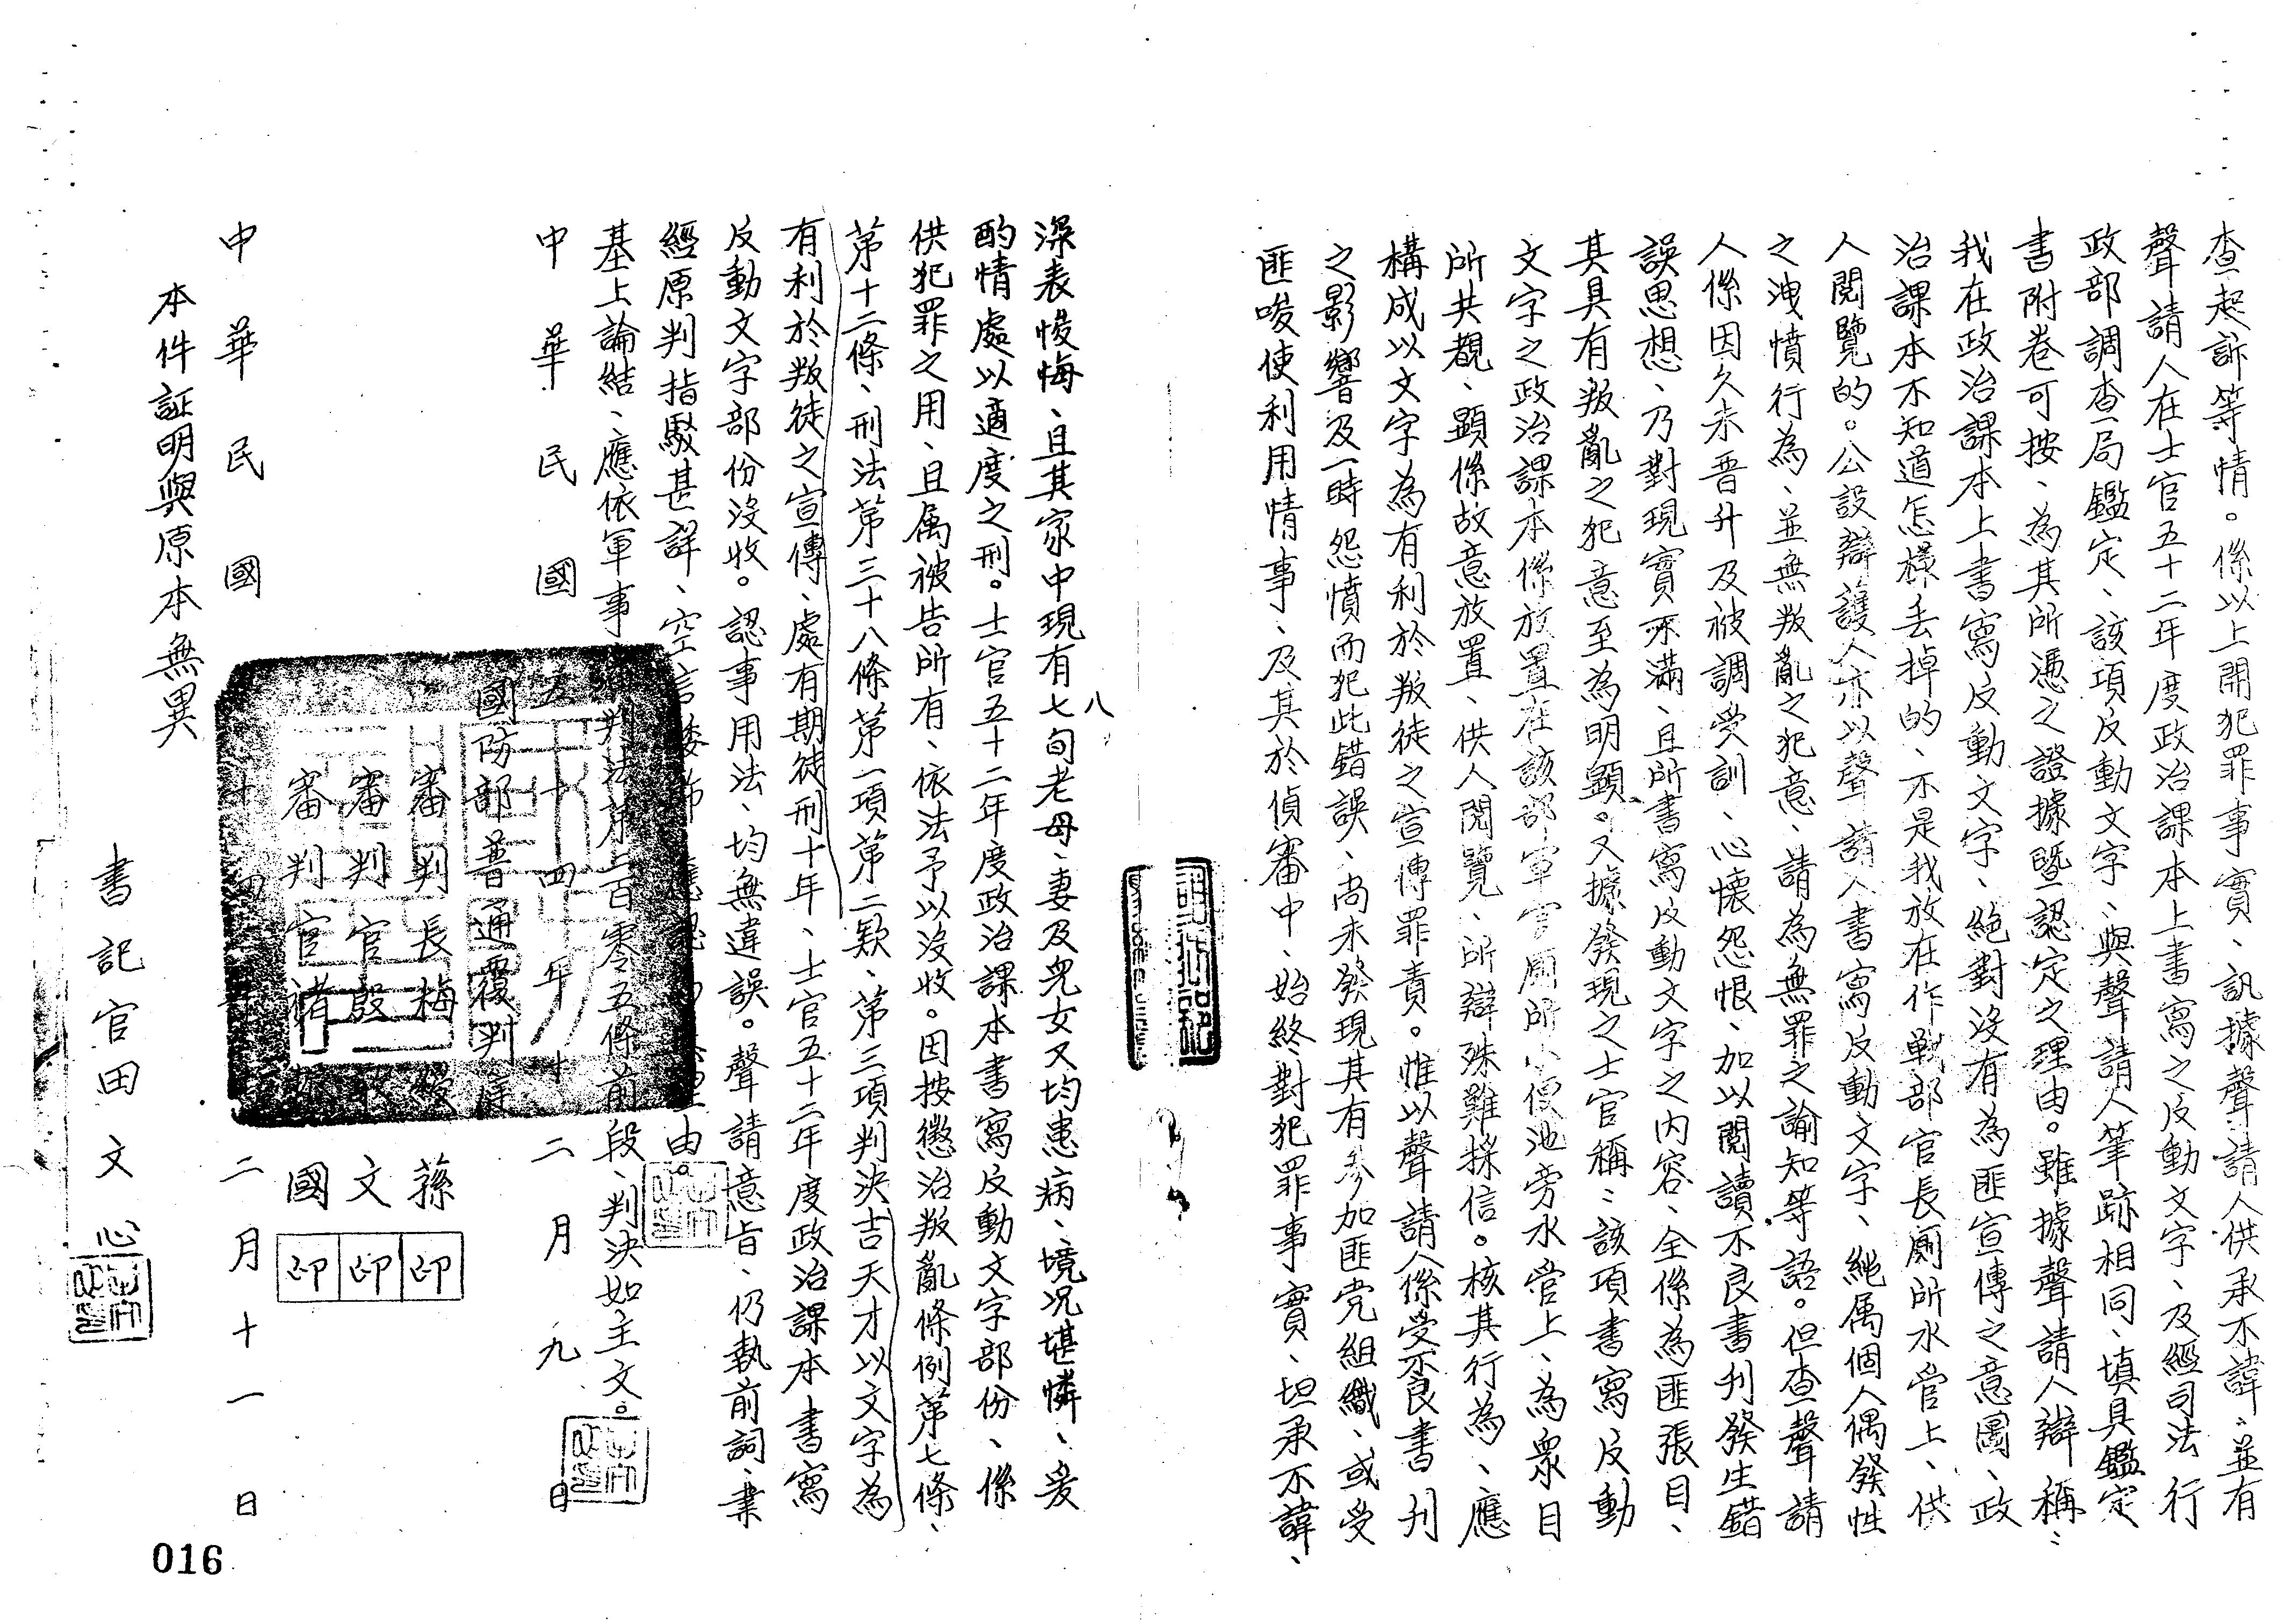 查起訴等情。係以上開犯罪事實、訊據聲請人供承不諱、並有
聲請人在士官五十二年度政治課本上書寫之反動文字、及經司法行
政部調查局鑑定、該項反動文字、與聲請人筆跡相同、填具鑑定
書附卷可按、為其所憑之證據暨認定之理由。雖據聲請人辯稱：
我在政治課本上書寫反動文字、絕對沒有為匪宣傳之意圖、政
治課本不知道怎樣丟掉的、不是我放在作戰部官長廁所水管上、供
人閱覽的。公設辯護人亦以聲請人書寫反動文字、純属個人偶發性
之洩憤行為、並無叛亂之犯意、請為無罪之諭知等語。但查聲請
人係因久未晋升及被調受訓、心懷怨恨、加以閱讀不良書刊發生錯
誤思想、乃對現實不滿、且所書寫反動文字之内容、全係為匪張目、
其具有叛亂之犯意至為明顯。又據發現之士官稱：該項書寫反動
文字之政治課本係放置在該部軍官厠所小便池旁水管上、為眾目
所共覩、顯係故意放置、供人閱覽、所辯殊難採信。核其行為、應
構成以文字為有利於叛徒之宣傳罪責。惟以聲請人係受不良書刊
之影響及一時怨憤而犯此錯誤、尚未發現其有參加匪党組織、或受
匪唆使利用情事、及其於偵審中、始終對犯罪事實、坦承不諱、
八
深表悛悔、且其家中現有七旬老母、妻及兒女又均患病、境况堪憐、爰
酌情處以適度之刑。士官五十二年度政治課本書寫反動文字部份、係
供犯罪之用、且属被告所有、依法予以沒收。因按懲治叛亂條例第七條、
第十二條、刑法第三十八條第一項第二款、第三項判決吉天才以文字為
有利於叛徒之宣傳、處有期徒刑十年、士官五十二年度政治課本書寫
反動文字部份沒收。認事用法、均無違誤。聲請意旨、仍執前詞、業
經原判指駁甚詳、空言 由。
基上論結、應依軍事審判法第二百零五條前段、判決如主文。
中華民國五十四年十二月九日
國防部普通覆判庭
審判長梅綬蓀
審判官殷 文
審判官褚 國
印
印
印
本件証明與原本無異
中華民國 十四年 二月十一日
書記官田文心
016